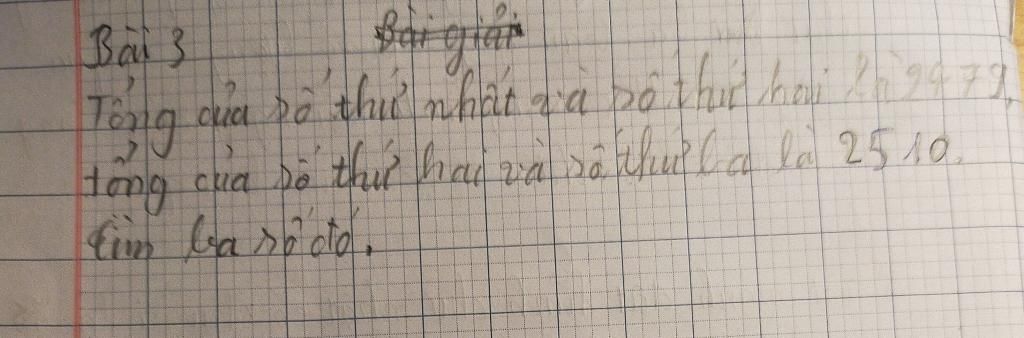 Bài 3 Bài giải
Tổng của số thứ nhất và số thứ hai là 2479,
tổng của số thứ hai và số thứ ba là 2510.
tìm ba số đó.